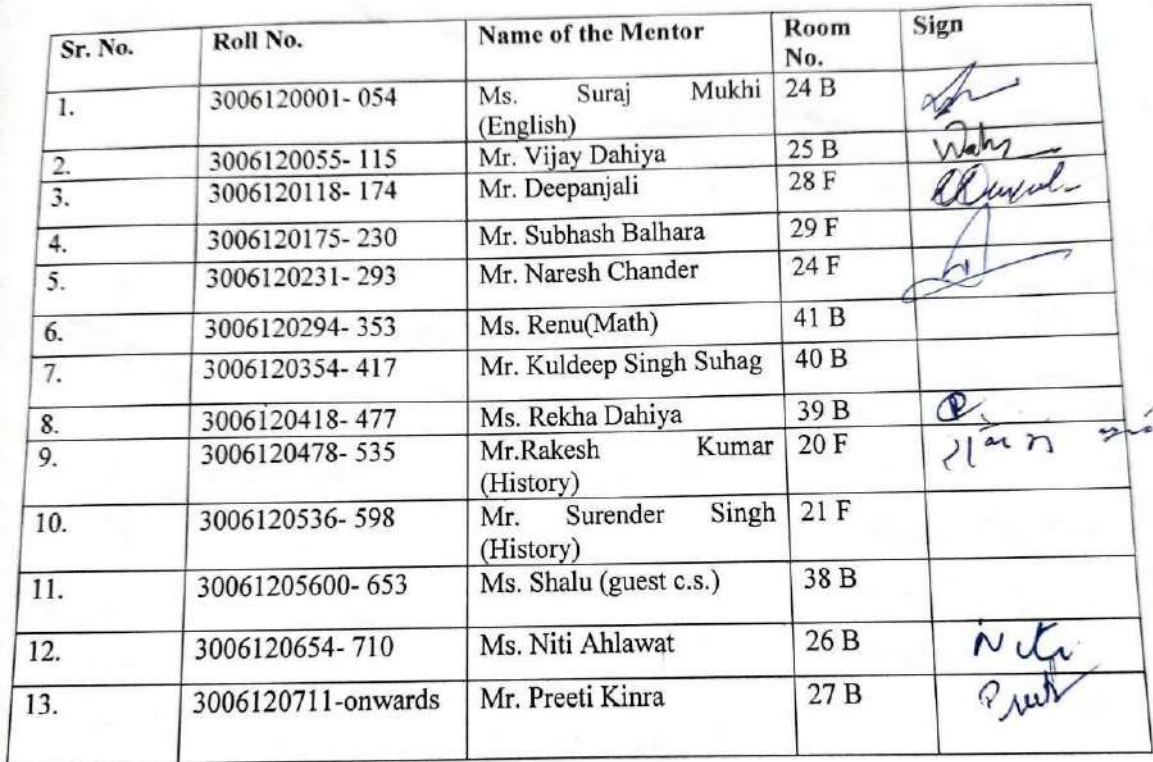 Sr. No. Roll No. Name of the Mentor Room Sign
No.
1. 3006120001- 054 Ms. Suraj Mukhi 24 B
(English)
2. 3006120055- 115 Mr. Vijay Dahiya 25 B
3. 3006120118- 174 Mr. Deepanjali 28 F
4. 3006120175- 230 Mr. Subhash Balhara 29 F
5. 3006120231- 293 Mr. Naresh Chander 24 F
6. 3006120294- 353 Ms. Renu(Math) 41 B
7. 3006120354- 417 Mr. Kuldeep Singh Suhag 40 B
8. 3006120418- 477 Ms. Rekha Dahiya 39 B
9. 3006120478- 535 Mr.Rakesh Kumar 20 F
(History)
10. 3006120536- 598 Mr. Surender Singh 21 F
(History)
11. 30061205600- 653 Ms. Shalu (guest c.s.) 38 B
12. 3006120654- 710 Ms. Niti Ahlawat 26 B Niti
13. 3006120711-onwards Mr. Preeti Kinra 27 B Preeti